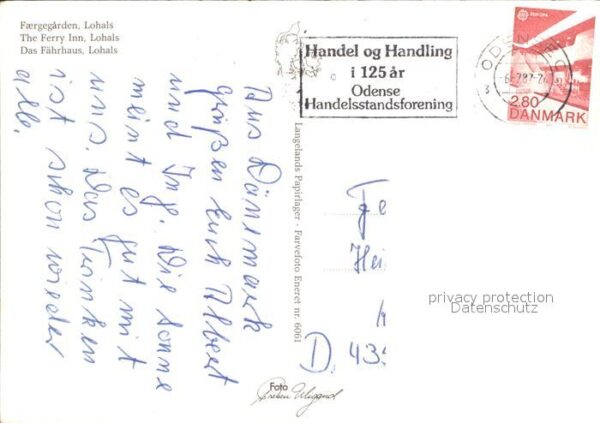 Færgegården, Lohals
The Ferry Inn, Lohals
Das Fährhaus, Lohals
Aus Dänemark
grüßen Euch Albert
und Ing. Die Sonne
meint es gut mit
uns. Das Trinken
ist schon wieder
alle.
Langelands Papirlager · Farvefoto Eneret nr. 6061
Handel og Handling
i 125 år
Odense
Handelsstandsforening
ODENSE
EUROPA
2.80
DANMARK
Hei
D. 43
privacy protection
Datenschutz
Foto